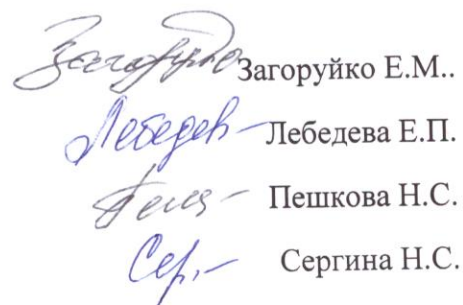 Загоруйко Загоруйко Е.М..
Лебедев Лебедева Е.П.
Пешкова Н.С.
Сер. Сергина Н.С.